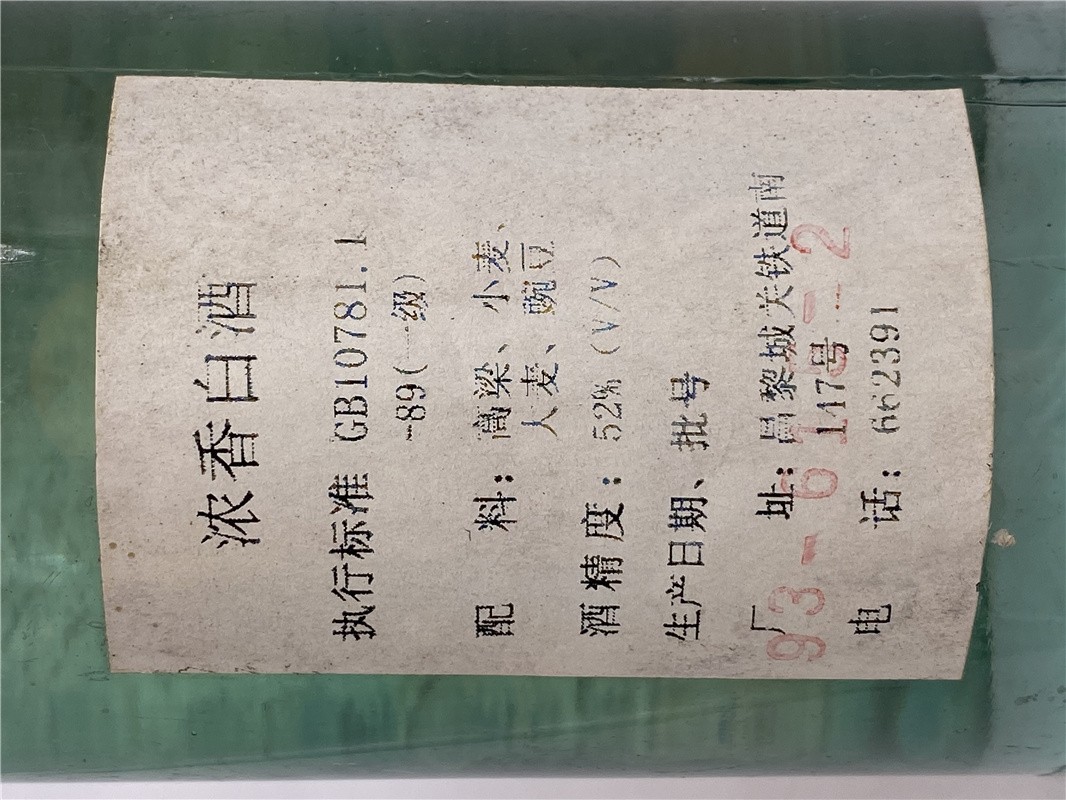 浓香白酒
执行标准 GB10781.1
-89(一级)
配 料:高梁、小麦、
大麦、豌豆
酒精度:52%(V/V)
生产日期、批号
厂 址:昌黎城关铁道南
147号
电 话:662391